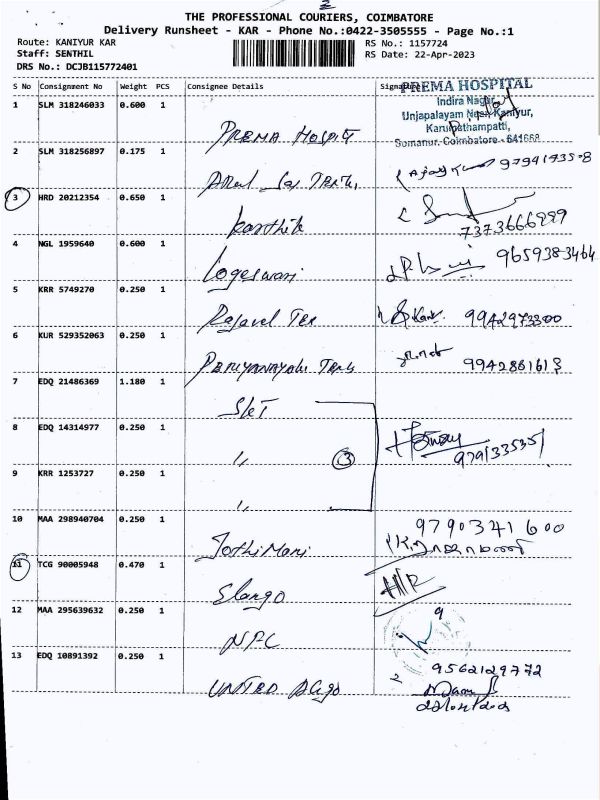 2
THE PROFESSIONAL COURIERS, COIMBATORE
Delivery Runsheet - KAR - Phone No.:0422-3505555 - Page No.:1
Route: KANIYUR KAR
RS No.: 1157724
Staff: SENTHIL
RS Date: 22-Apr-2023
DRS No.: DCJB115772401
S No Consignment No Weight PCS Consignee Details
PREMA HOSPITAL
Indira Nagar,
Unjapalayam Near Kaniyur,
Karumathampatti,
Somanur, Coimbatore - 641668
1 SLM 318246033 0.600 1 PREMA HOSPITAL
2 SLM 318256897 0.175 1
3 HRD 20212354 0.650 1 Karthik
7373666999
4 NGL 1959640 0.600 1 Logeswari 9659383464
5 KRR 5749270 0.250 1 Rajavel Tex 9942973300
6 KUR 529352063 0.250 1 9942861613
7 EDQ 21486369 1.180 1 SKT
8 EDQ 14314977 0.250 1 " 3
9 KRR 1253727 0.250 1 "
10 MAA 298940704 0.250 1 JothiMani 9790341600
11 TCG 90005948 0.470 1 Elango
12 MAA 295639632 0.250 1 NPC
13 EDQ 10891392 0.250 1 UNITED 9562129772